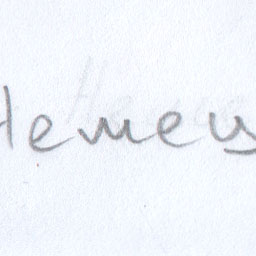 Немец